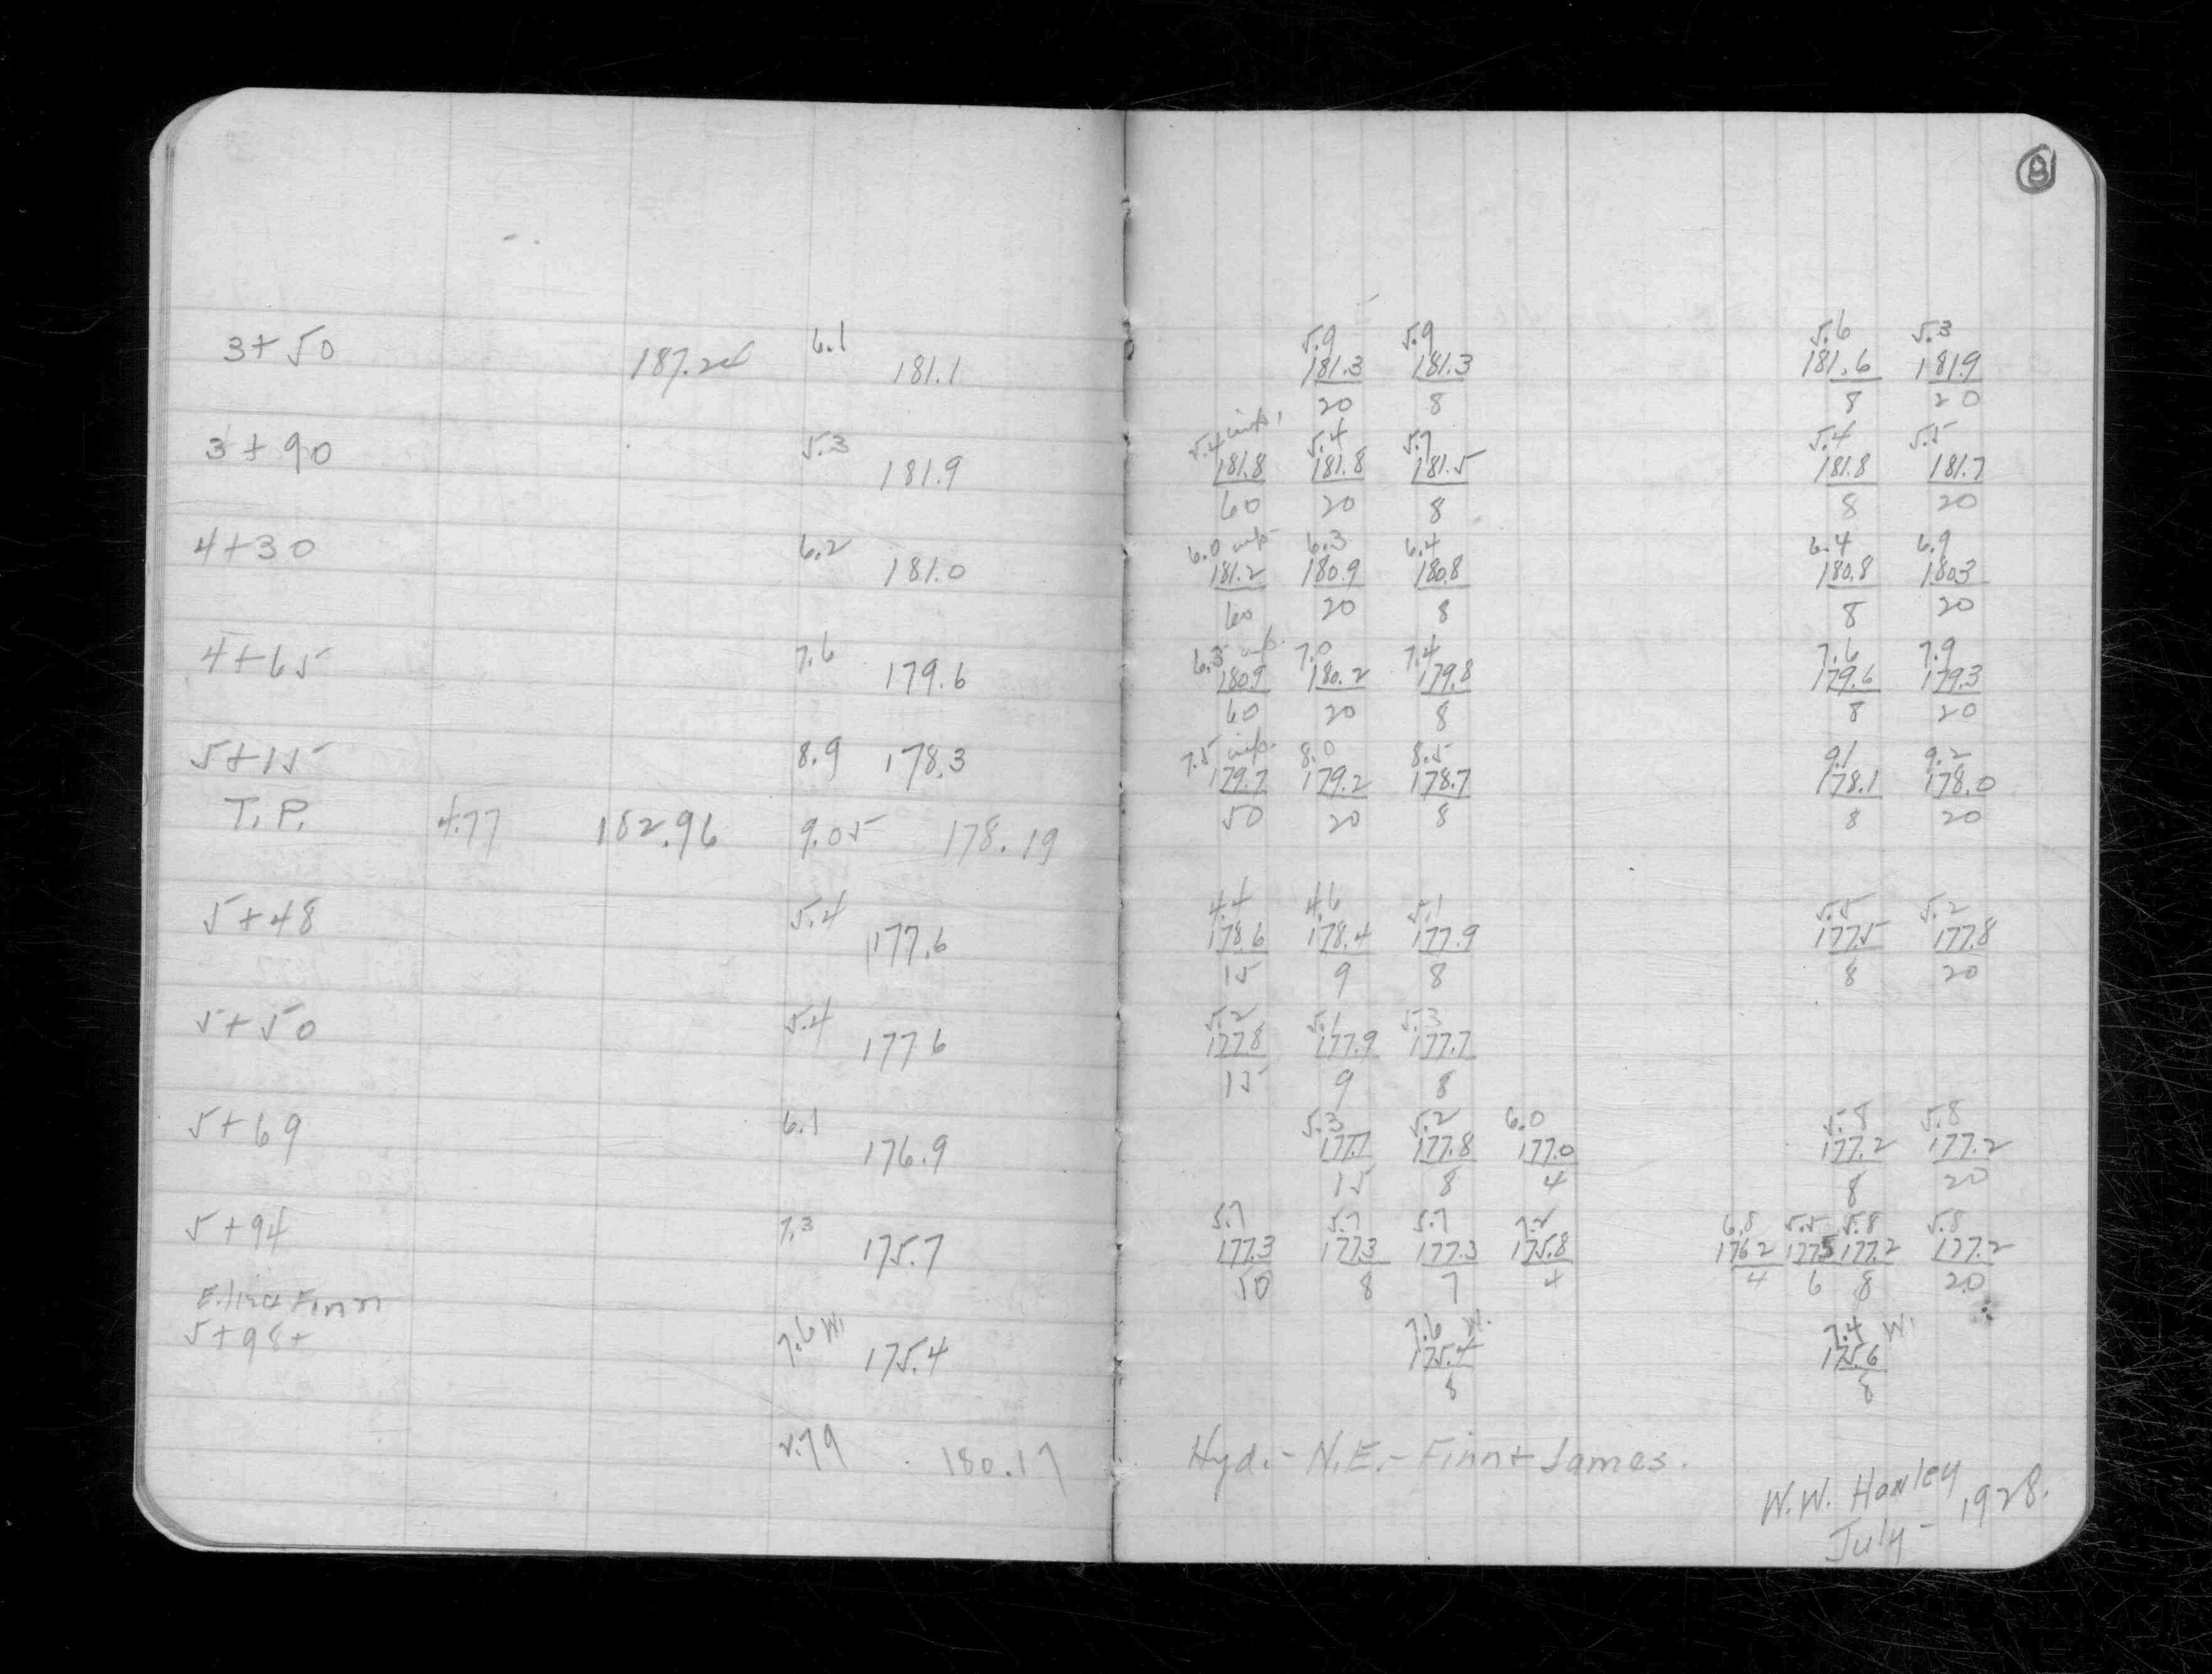 8
3+50 187.24 6.1 181.1
5.9 5.9 5.6 5.3
181.3 181.3 181.6 181.9
20 8 8 20
3+90 5.3 181.9
5.4 5.4 5.7 5.4 5.5
181.8 181.8 181.5 181.8 181.7
60 20 8 8 20
4+30 6.2 181.0
6.0 6.3 6.4 6.4 6.9
181.2 180.9 180.8 180.8 180.3
60 20 8 8 20
4+65 7.6 179.6
6.3 7.0 7.4 7.6 7.9
180.9 180.2 179.8 179.6 179.3
60 20 8 8 20
5+15 8.9 178.3
7.5 8.0 8.5 9.1 9.2
179.7 179.2 178.7 178.1 178.0
50 20 8 8 20
T.P. 4.77 182.96 9.05 178.19
5+48 5.4 177.6
4.4 4.6 5.1 5.5 5.2
178.6 178.4 177.9 177.5 177.8
15 9 8 8 20
5+50 5.4 177.6
5.2 5.1 5.3
177.8 177.9 177.7
15 9 8
5+69 6.1 176.9
5.3 5.2 6.0 5.8 5.8
177.7 177.8 177.0 177.2 177.2
15 8 4 8 20
5+94 7.3 175.7
5.7 5.7 5.7 7.2 6.8 5.5 5.8 5.8
177.3 177.3 177.3 175.8 176.2 177.5 177.2 177.2
50 8 7 4 4 6 8 20
E. line Finn
5+98+ 7.6 W. 175.4
7.6 W. 7.4 W.
175.4 175.6
8 8
2.79 180.17 Hyd.- N.E.- Finn + James.
W.W. Hanley
July - 1928.